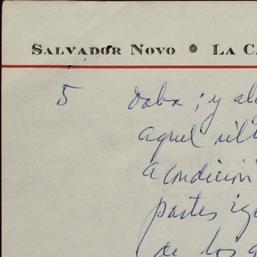 SALVADOR NOVO • LA C
5 daba; y al
aquel
a condición
partes ig
de los